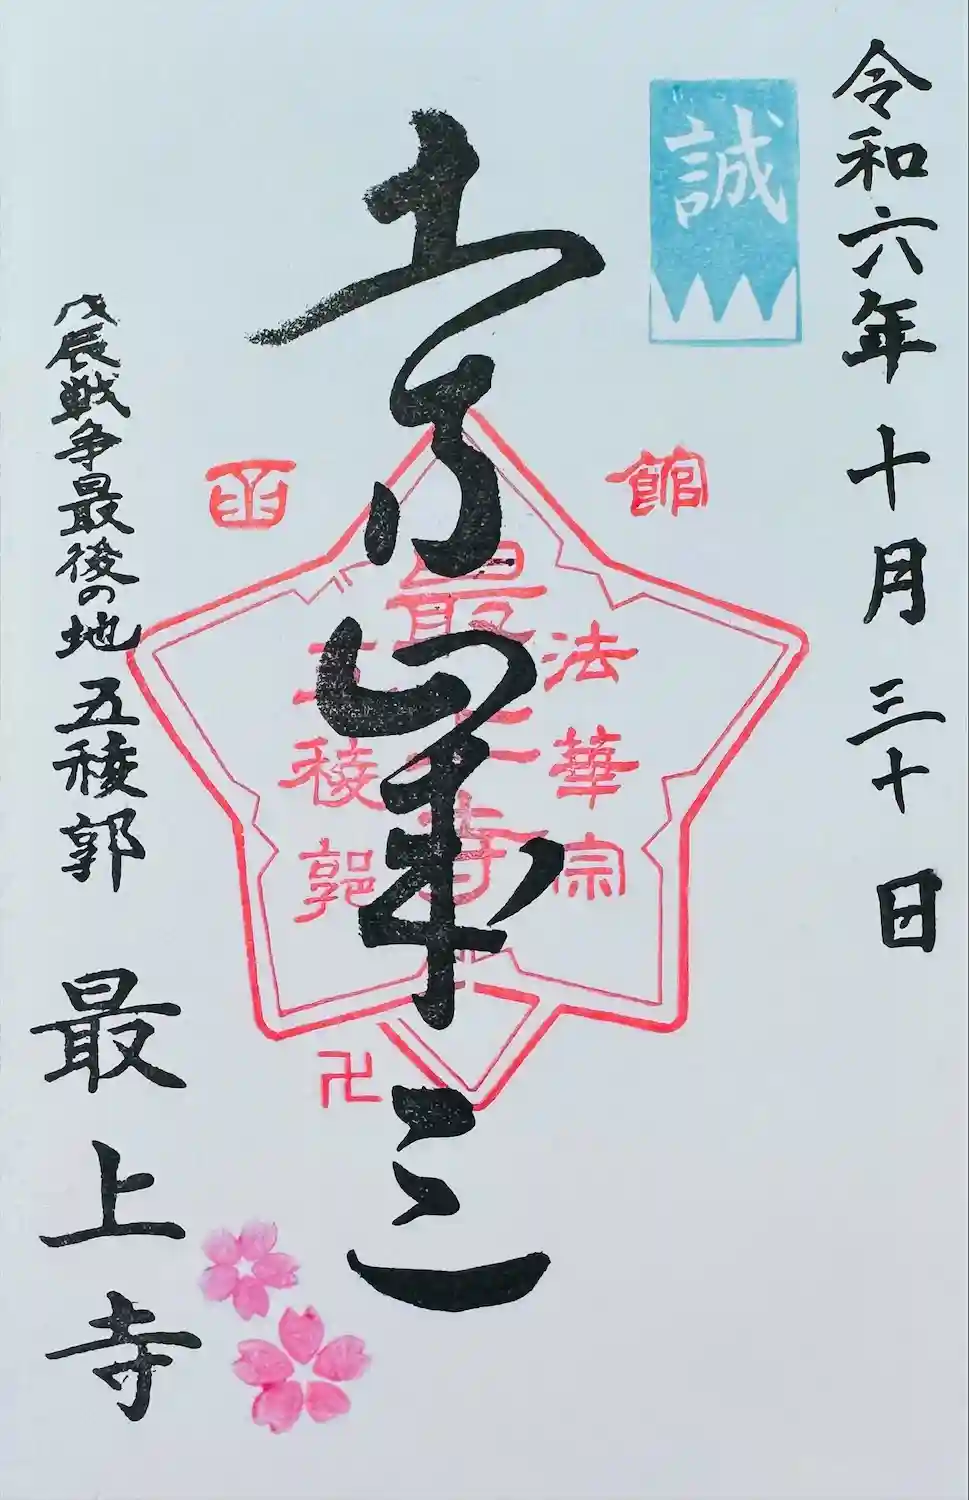 令和六年十月三十日
誠
土方歳三
函館
法華宗
最上寺
五稜郭
卍
戊辰戦争最後の地 五稜郭 最上寺